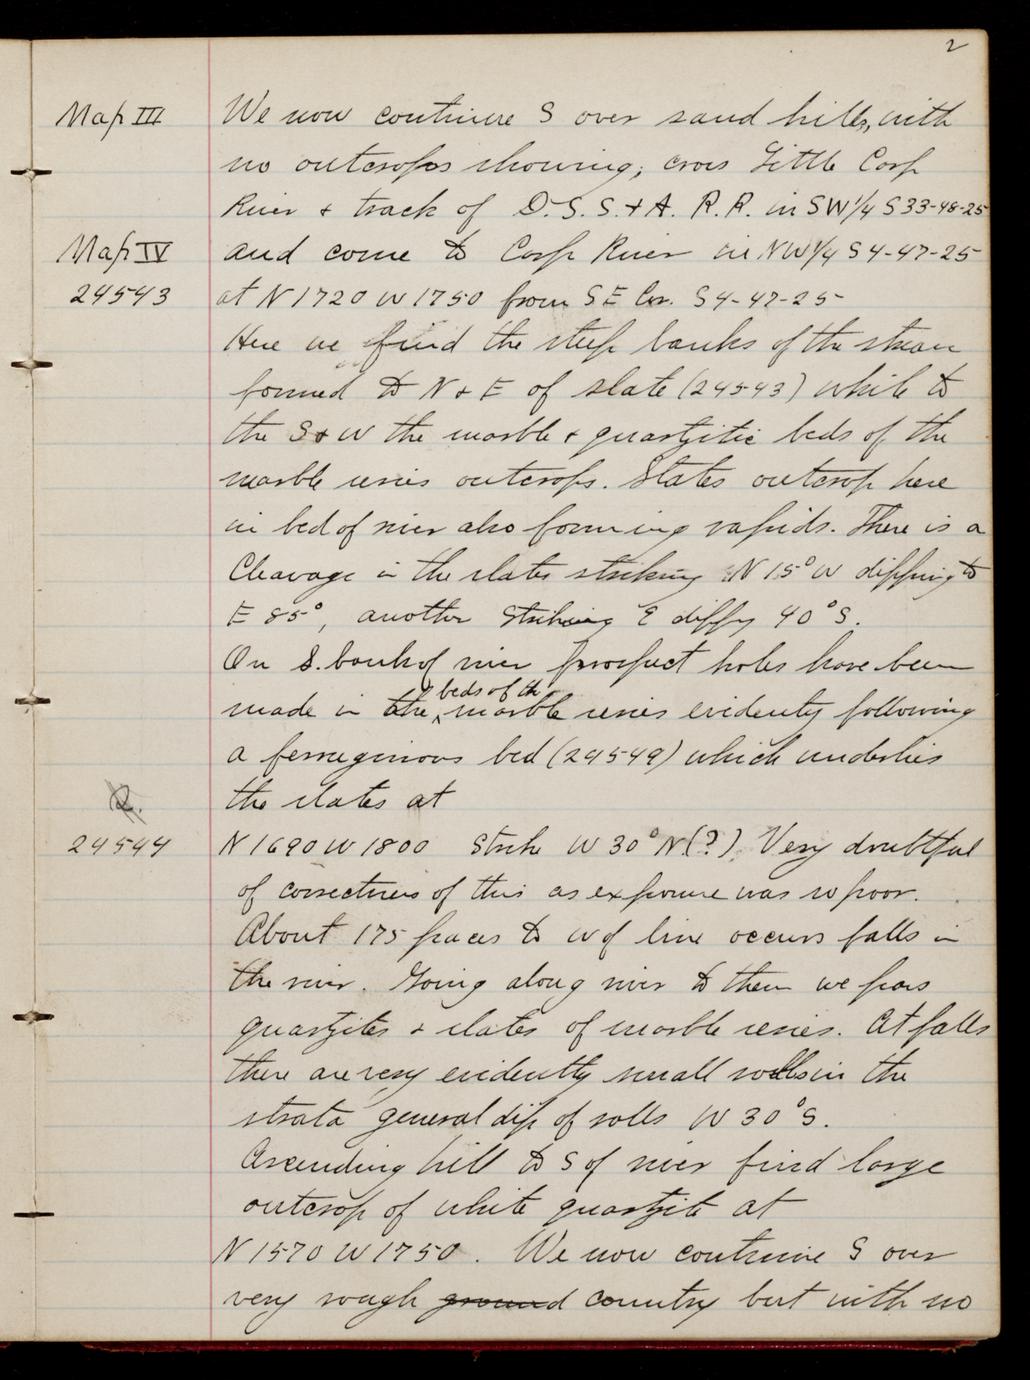 2
Map III We now continue S over sand hills, with
no outcrops showing; cross Little Carp
River + track of D. S. S. + A. R. R. in SW1/4 S33-48-25
Map IV and come to Carp River in NW1/4 S4-47-25
24543 at N1720 W1750 from SE Cor. S4-47-25
Here we find the steep banks of the stream
formed to N + E of slate (24543) while to
the S + W the marble + quartzitic beds of the
marble series outcrops. Slates outcrop here
in bed of river also forming rapids. There is a
Cleavage in the slates striking N15°W dipping to
E 85°, another striking E dippg 40°S.
On S. bank of river prospect holes have been
made in the beds of the marble series evidently following
a ferruginous bed (24544) which underlies
the slates at
R.
24544 N1690 W1800 Strike W30°N(?) Very doubtful
of correctness of this as exposure was so poor.
About 175 paces to W of line occurs falls in
the river. Going along river to them we pass
quartzites + slates of marble series. At falls
there are very evidently small rolls in the
strata general dip of rolls W30°S.
Ascending hill to S of river find large
outcrop of white quartzite at
N1570 W1750. We now continue S over
very rough ground country but with no